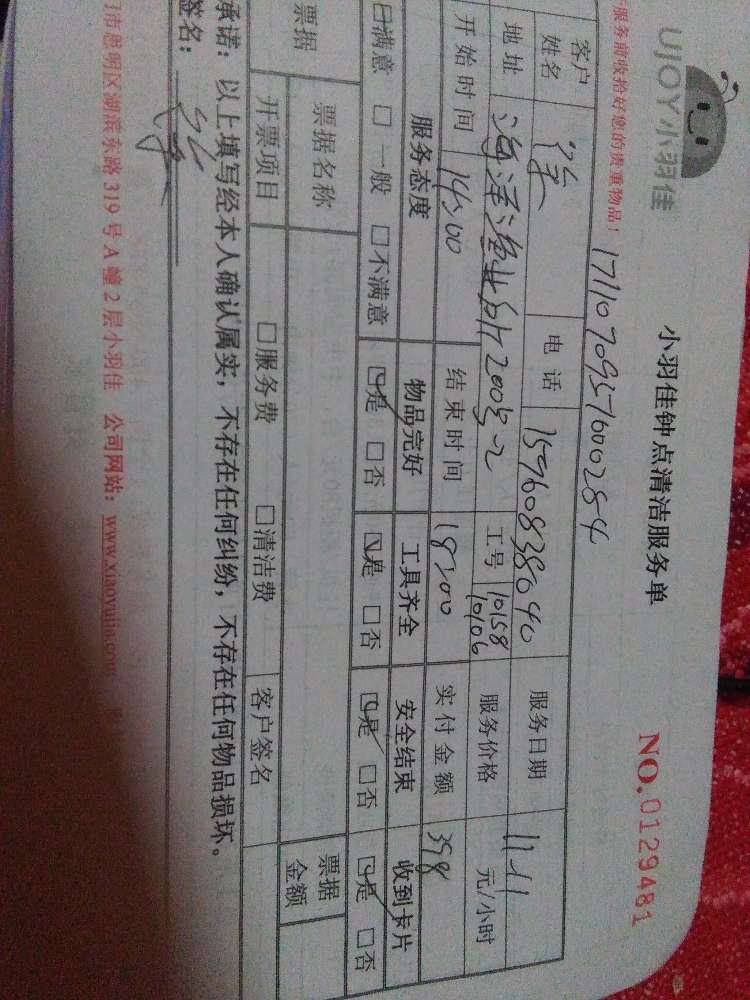 UJOY小羽佳
小羽佳钟点清洁服务单
NO.0129481
服务前收拾好您的贵重物品！
17110709576000284
客户姓名 电话 15960838040 服务日期 11.11
地址 海洋渔业 2005-2 工号 10158 10106 服务价格 元/小时
开始时间 14:00 结束时间 18:00 实付金额 398
服务态度 物品完好 工具齐全 安全结束 收到卡片
满意 □一般 □不满意 是 □否 是 □否 是 □否 是 □否
票据 票据名称 票据金额
开票项目 □服务费 □清洁费 客户签名
承诺：以上填写经本人确认属实，不存在任何纠纷，不存在任何物品损坏。
签名：
门市思明区湖滨东路319号A幢2层小羽佳 公司网站：www.xiaoyujia.com